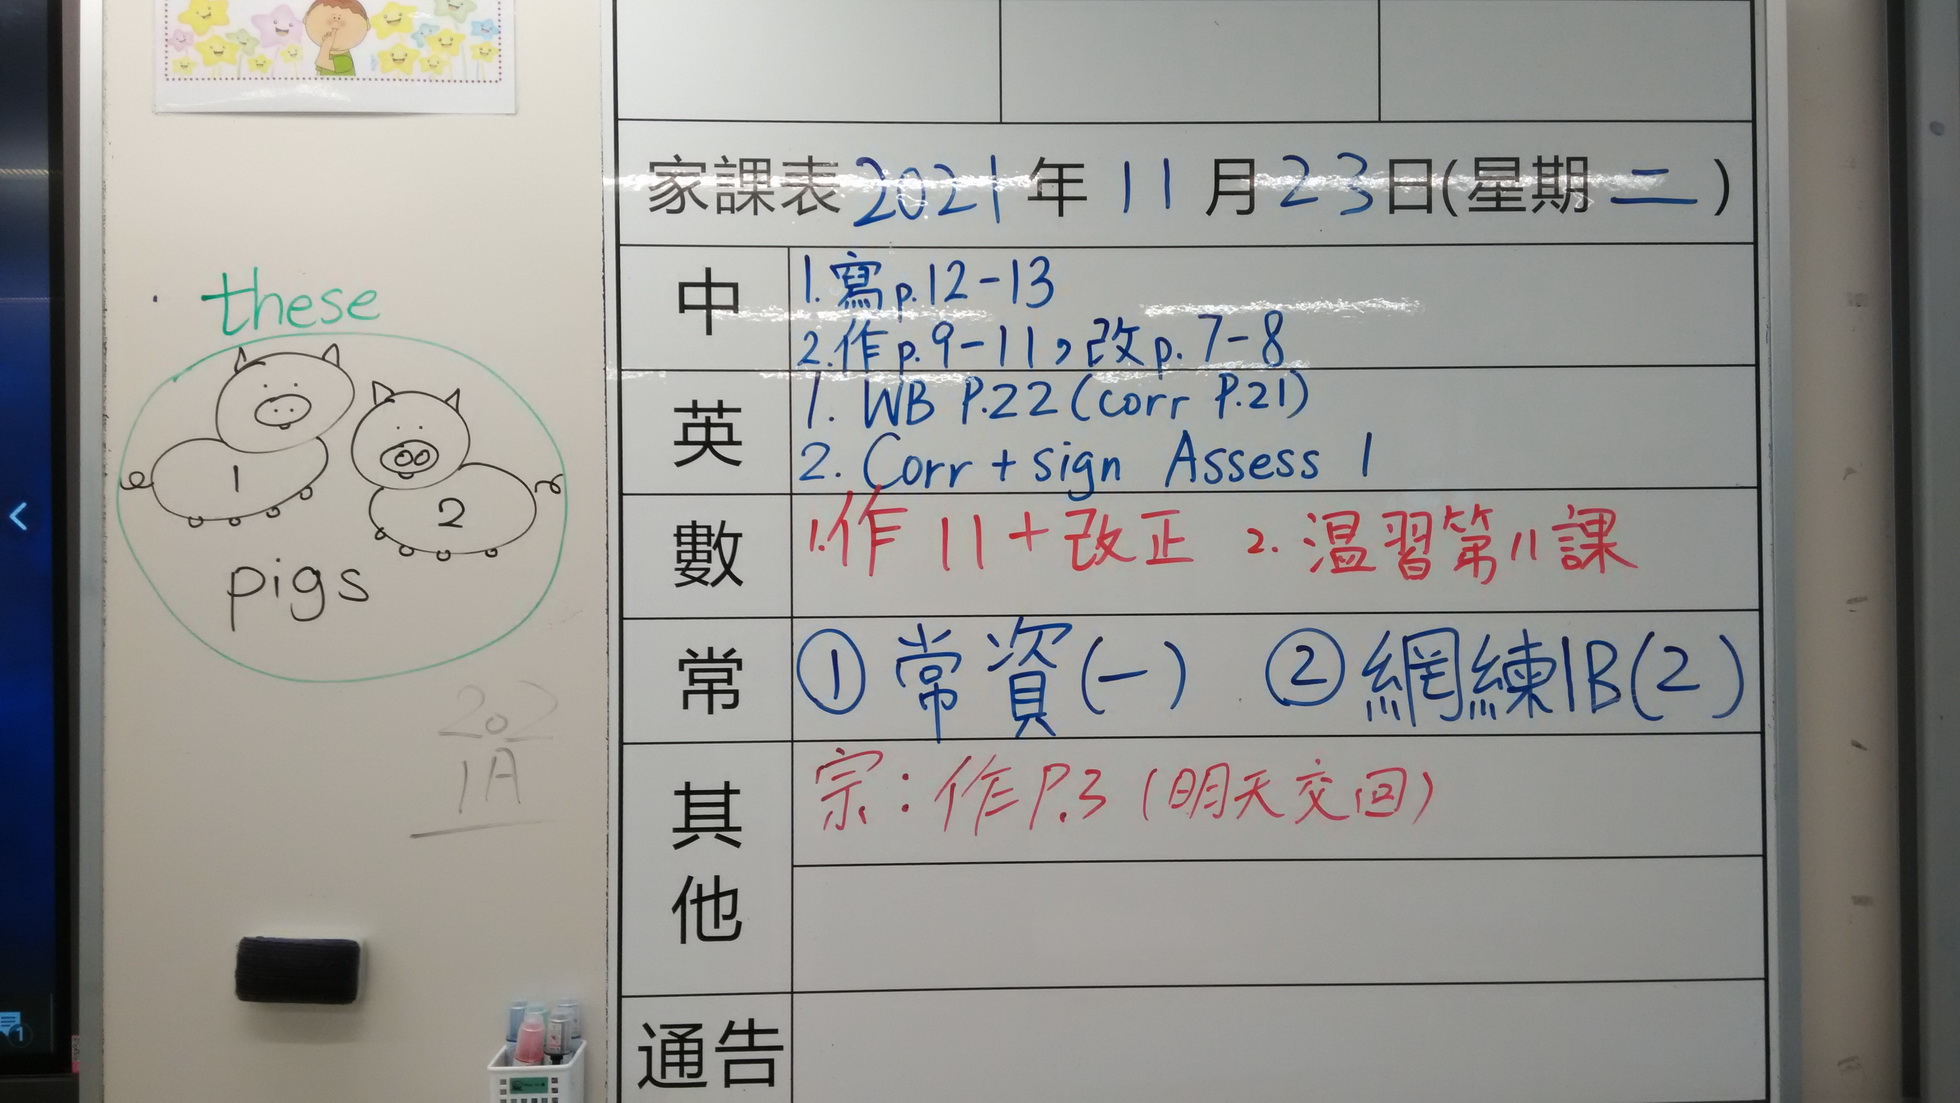 these
1
2
pigs
202
1A
家課表 2021 年 11 月 23 日(星期 二 )
中
1. 寫p.12-13
2. 作p.9-11,改p.7-8
英
1. WB P.22 (corr P.21)
2. Corr + sign Assess 1
數
1.作 11 + 改正 2. 温習第11課
常
① 常資(一) ② 網練1B(2)
其他
宗:作P.3 (明天交回)
通告
1